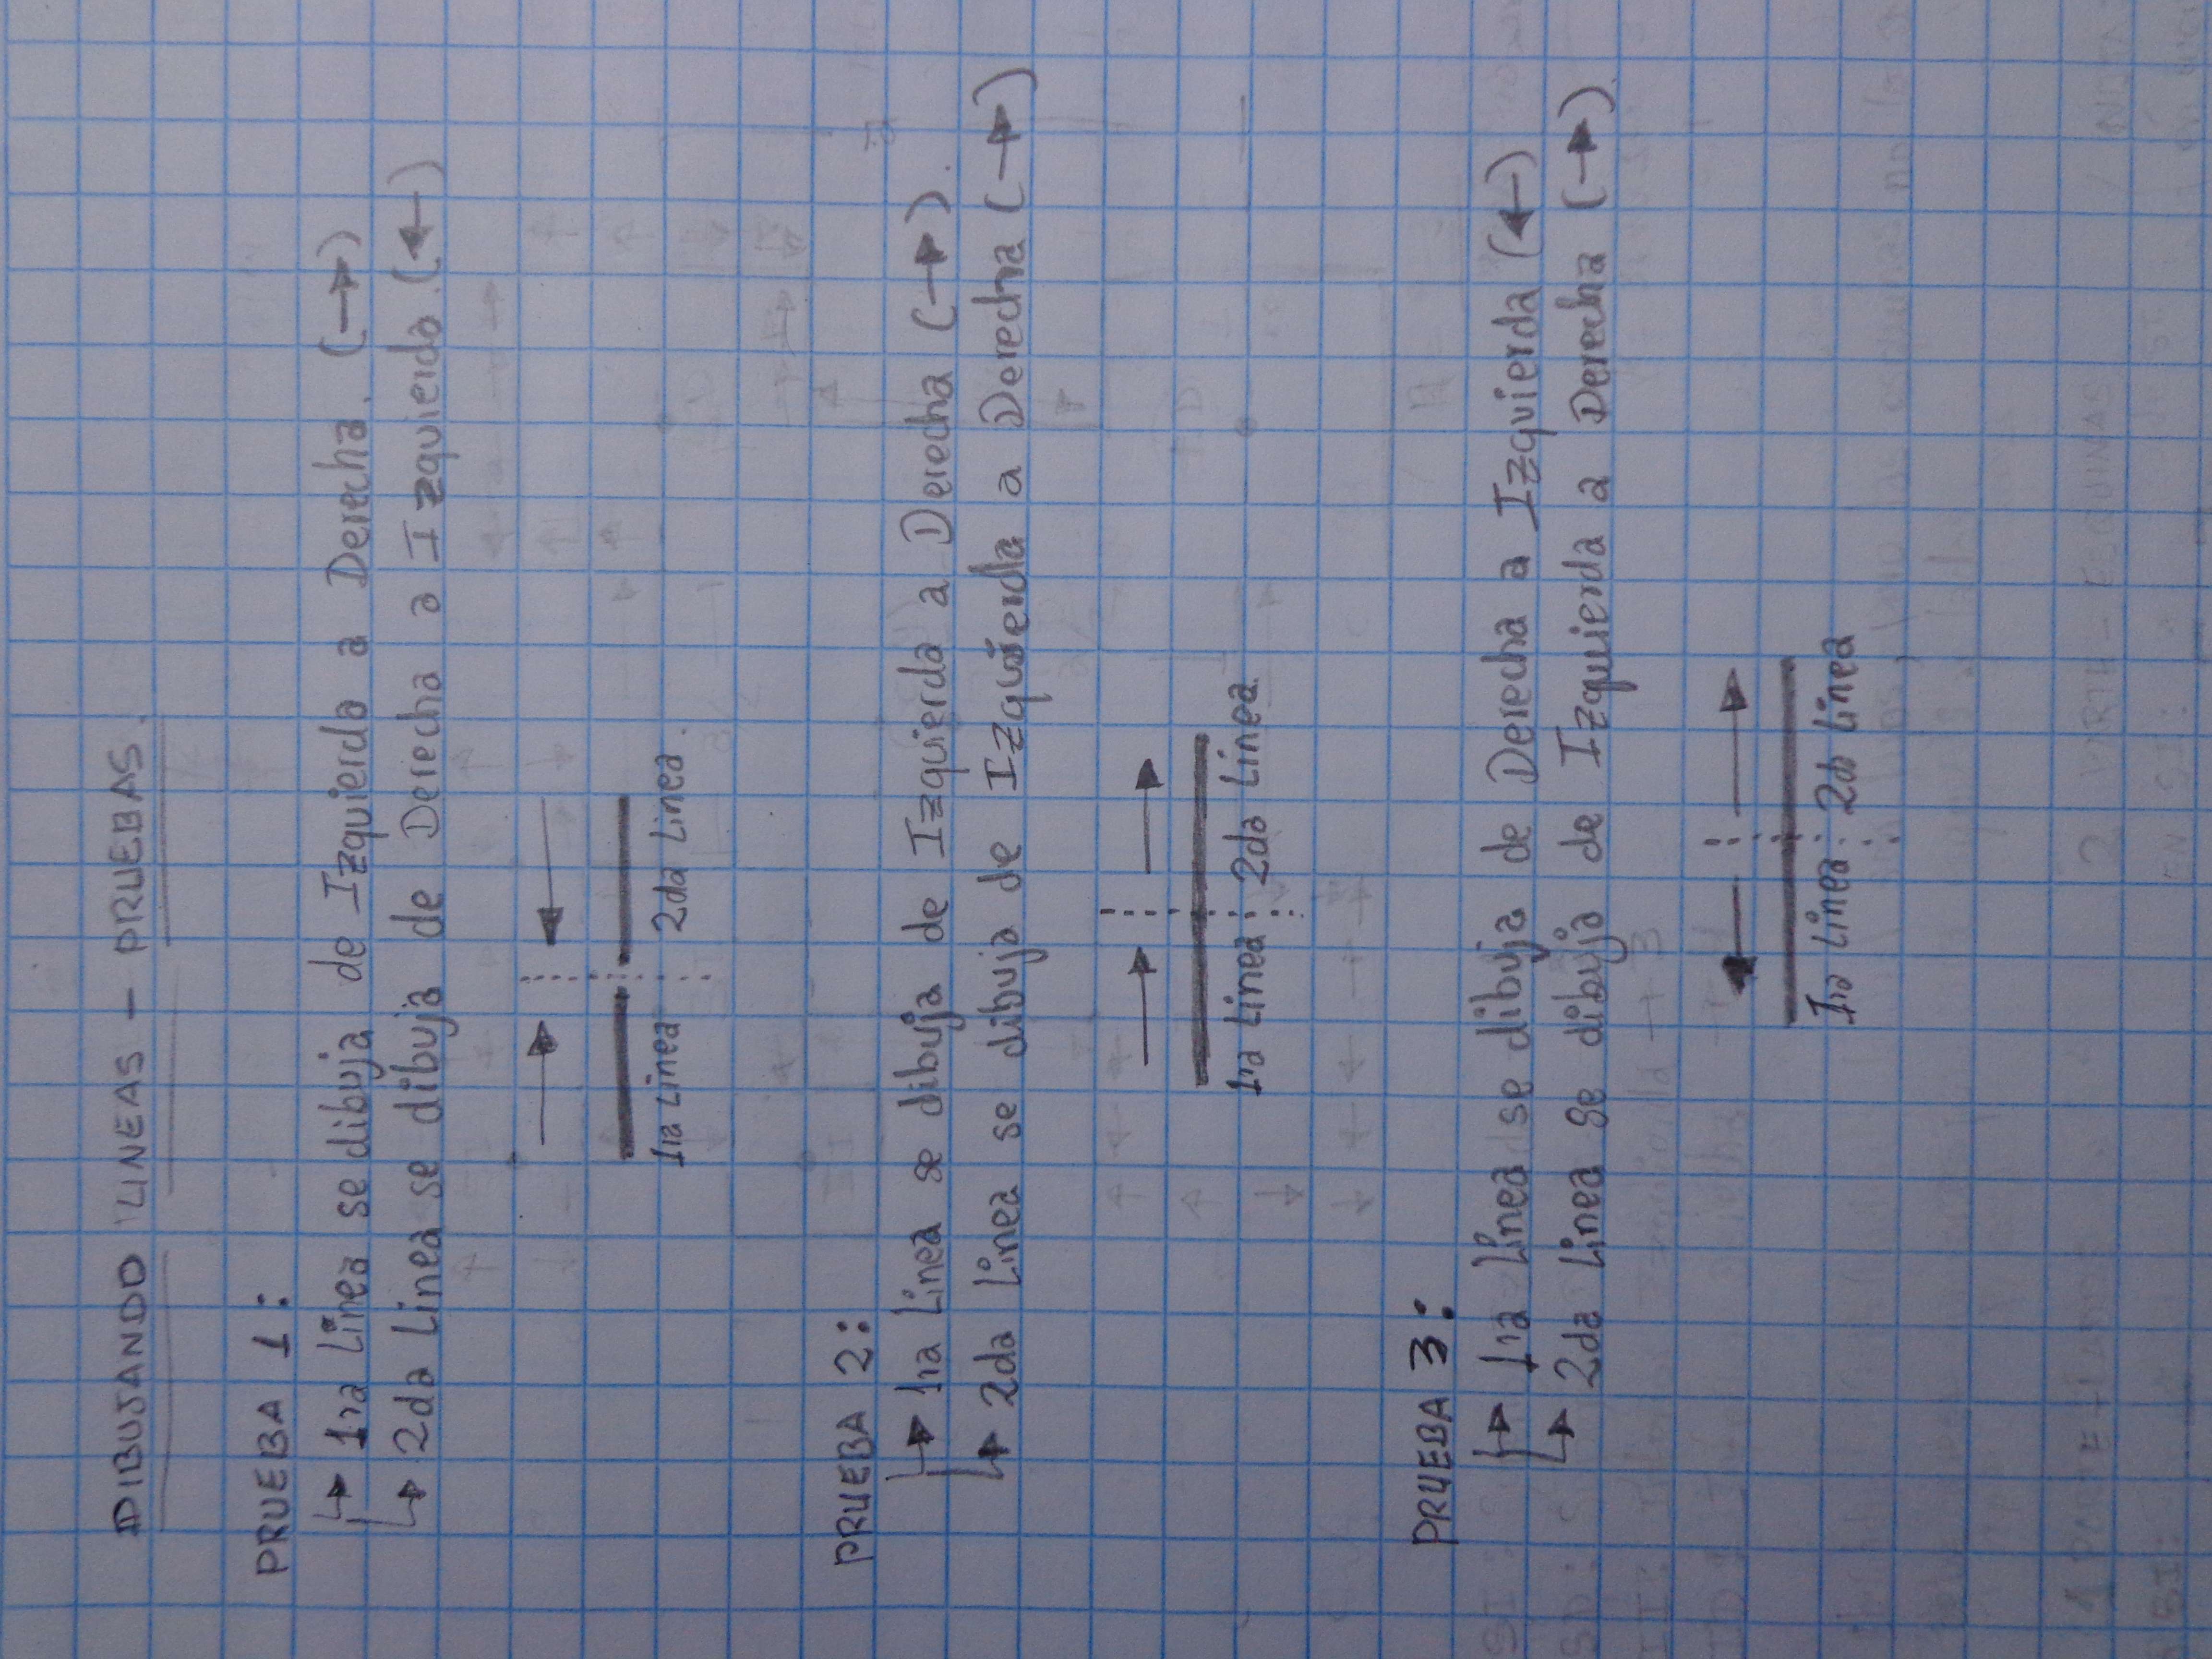 DIBUJANDO LINEAS - PRUEBAS.
PRUEBA 1:
↳ 1ra Linea se dibuja de Izquierda a Derecha. (→)
↳ 2da Linea se dibuja de Derecha a Izquierda. (←)
1ra Linea 2da Linea.
PRUEBA 2:
↳ 1ra Linea se dibuja de Izquierda a Derecha (→).
↳ 2da Linea se dibuja de Izquierda a Derecha (→)
1ra Linea 2da Linea.
PRUEBA 3:
↳ 1ra Linea se dibuja de Derecha a Izquierda (←)
↳ 2da Linea se dibuja de Izquierda a Derecha (→).
1ra Linea 2da Linea